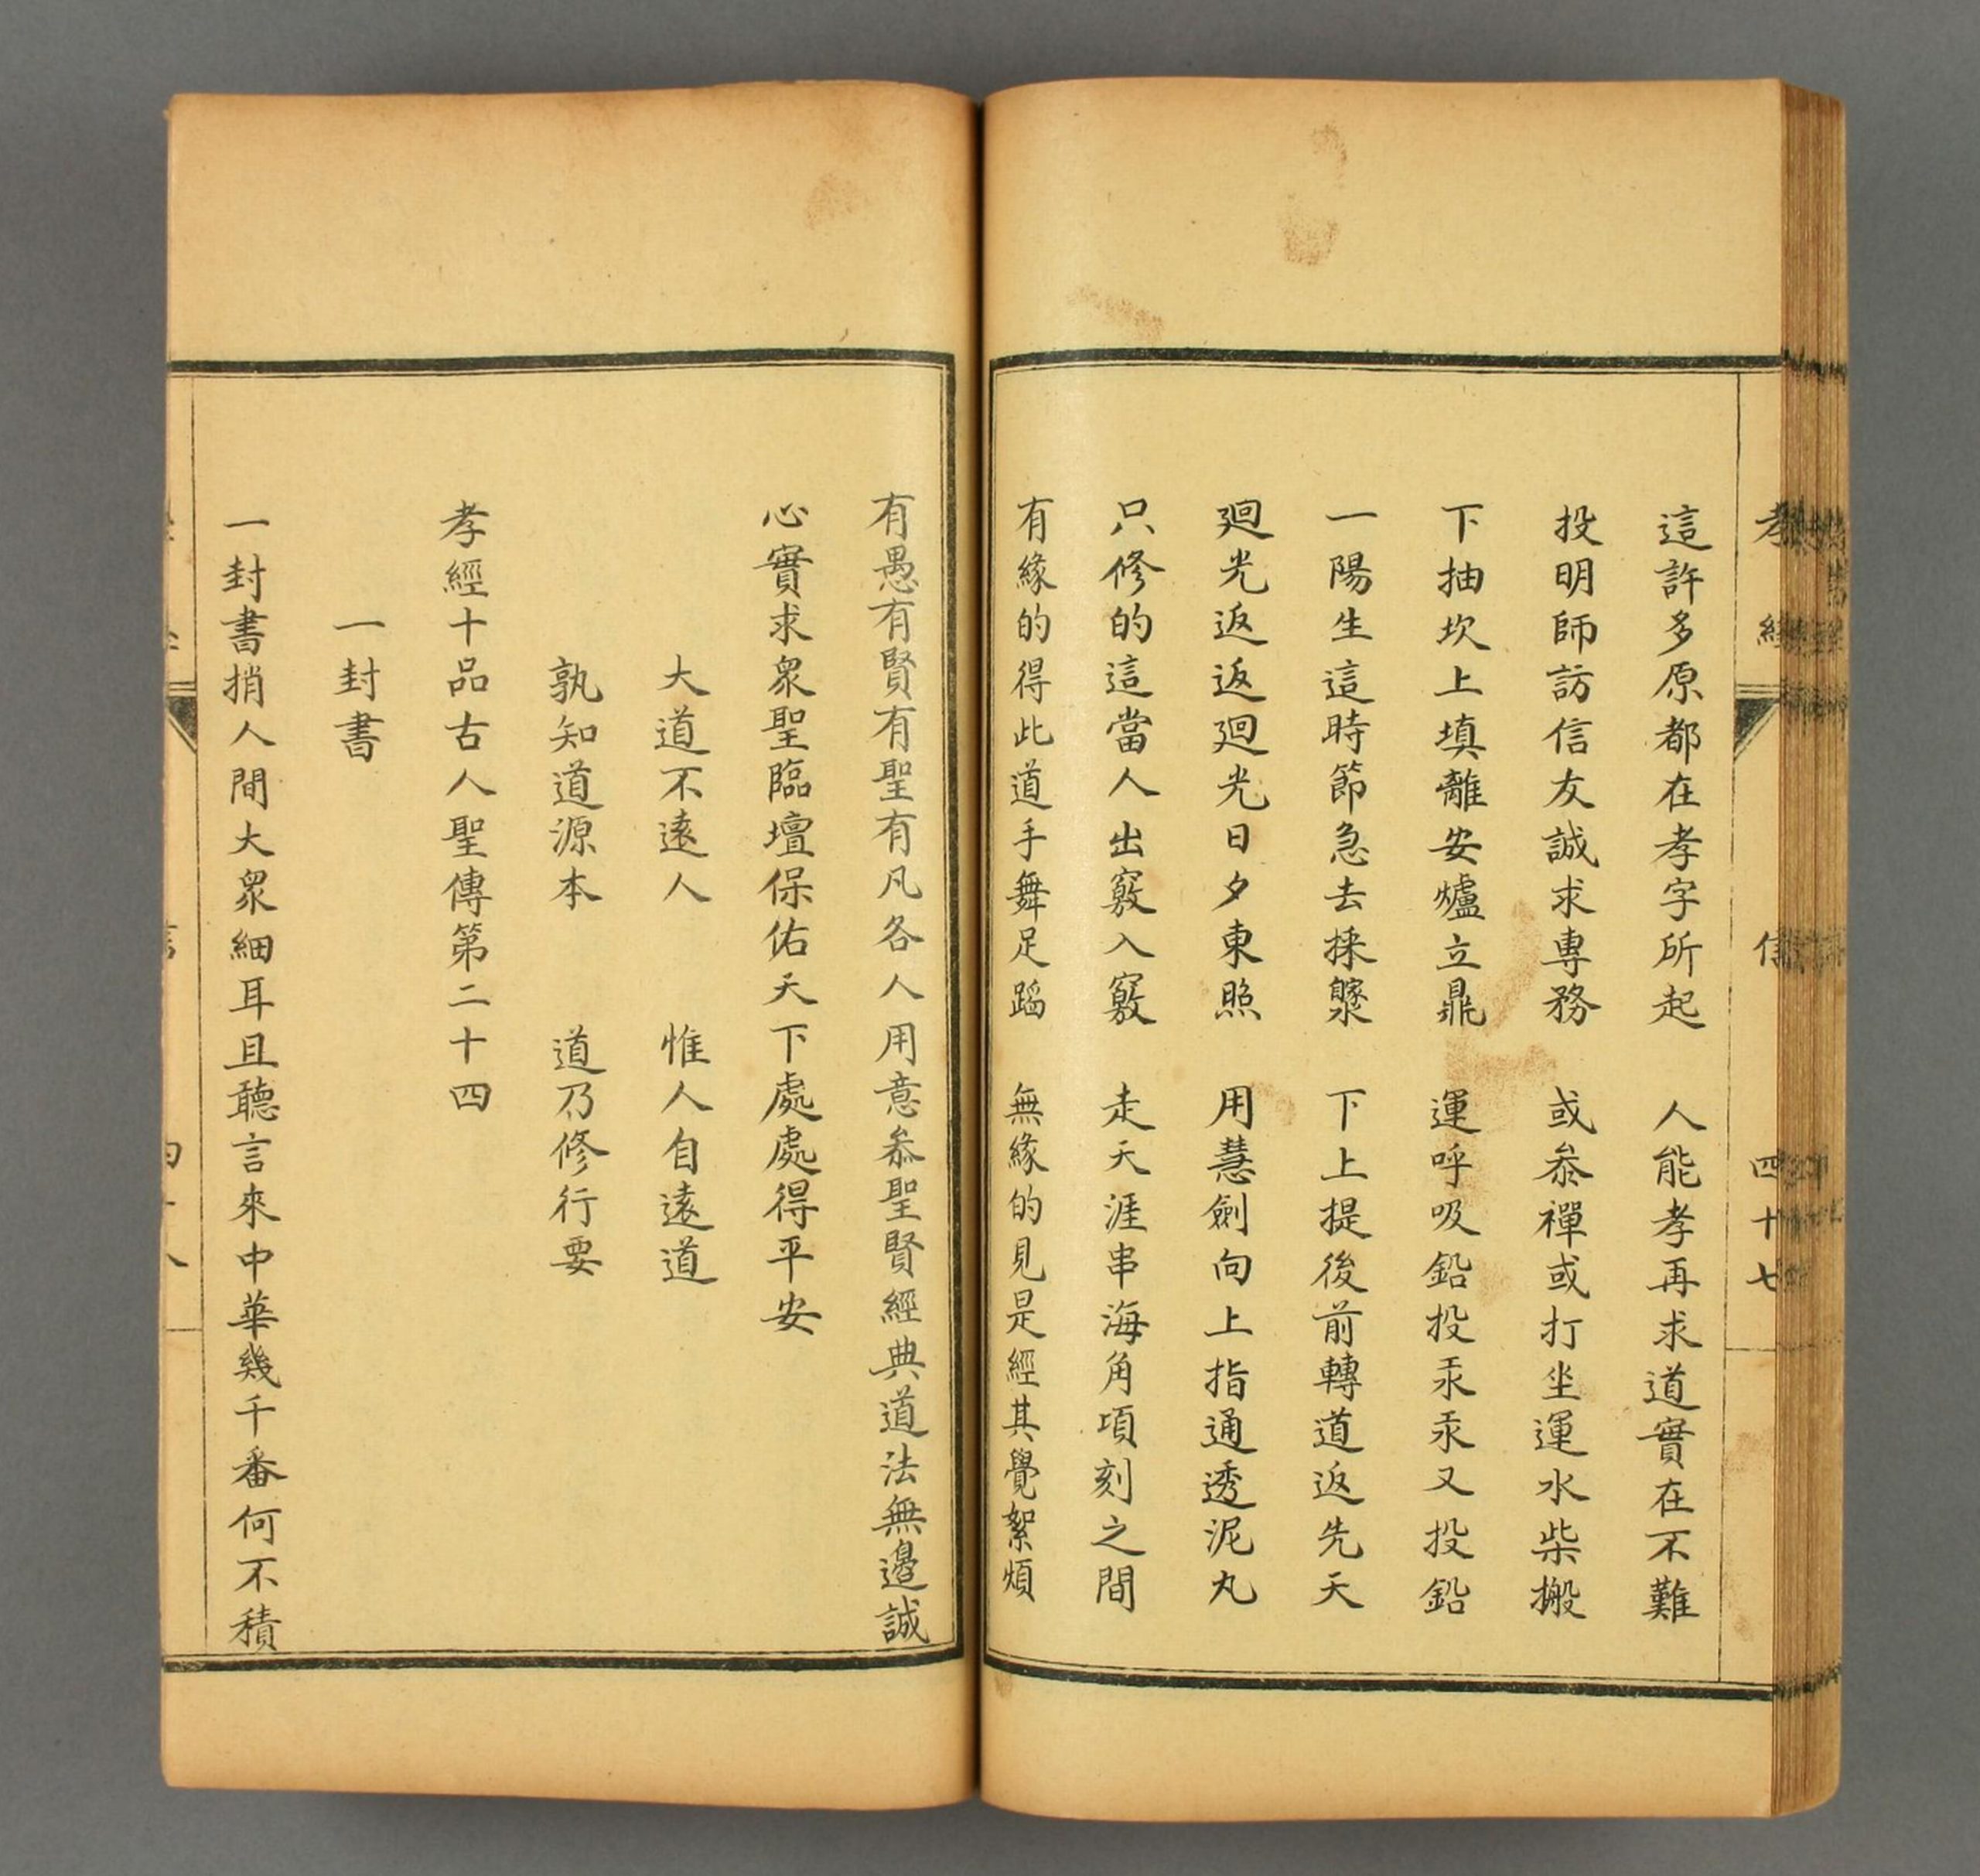 孝經 信 四十七
這許多原都在孝字所起 人能孝再求道實在不難
投明師訪信友誠求專務 或叅禪或打坐運水柴搬
下抽坎上填離安爐立鼎 運呼吸鉛投汞汞又投鉛
一陽生這時節急去採 下上提後前轉道返先天
廻光返返廻光日夕東照 用慧劍向上指通透泥丸
只修的這當人出竅入竅 走天涯串海角項刻之間
有緣的得此道手舞足蹈 無緣的見是經其覺絮煩
有愚有賢有聖有凡各人用意叅聖賢經典道法無邉誠
心實求眾聖臨壇保佑天下處處得平安
大道不遠人 惟人自遠道
孰知道源本 道乃修行要
孝經十品古人聖傳第二十四
一封書
一封書捎人間大眾細耳且聽言來中華幾千番何不積